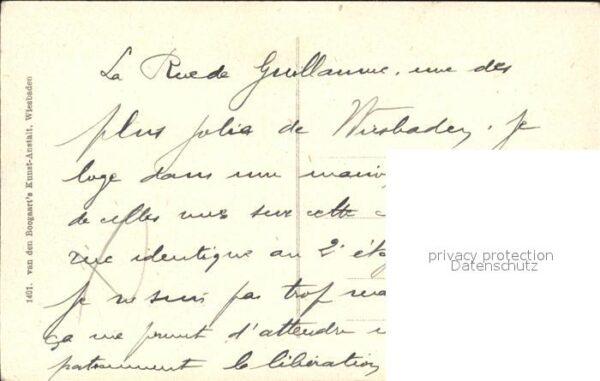 La Rue de Guillaume, une des
plus jolies de Wiesbaden. Je
loge dans une mais
de celles vues sur cette c
rue identique au 2e éta
Je ne suis pas trop ma
ça me permet d'attendre
patiemment la libération
1401. van den Boogaart's Kunst-Anstalt, Wiesbaden
privacy protection
Datenschutz